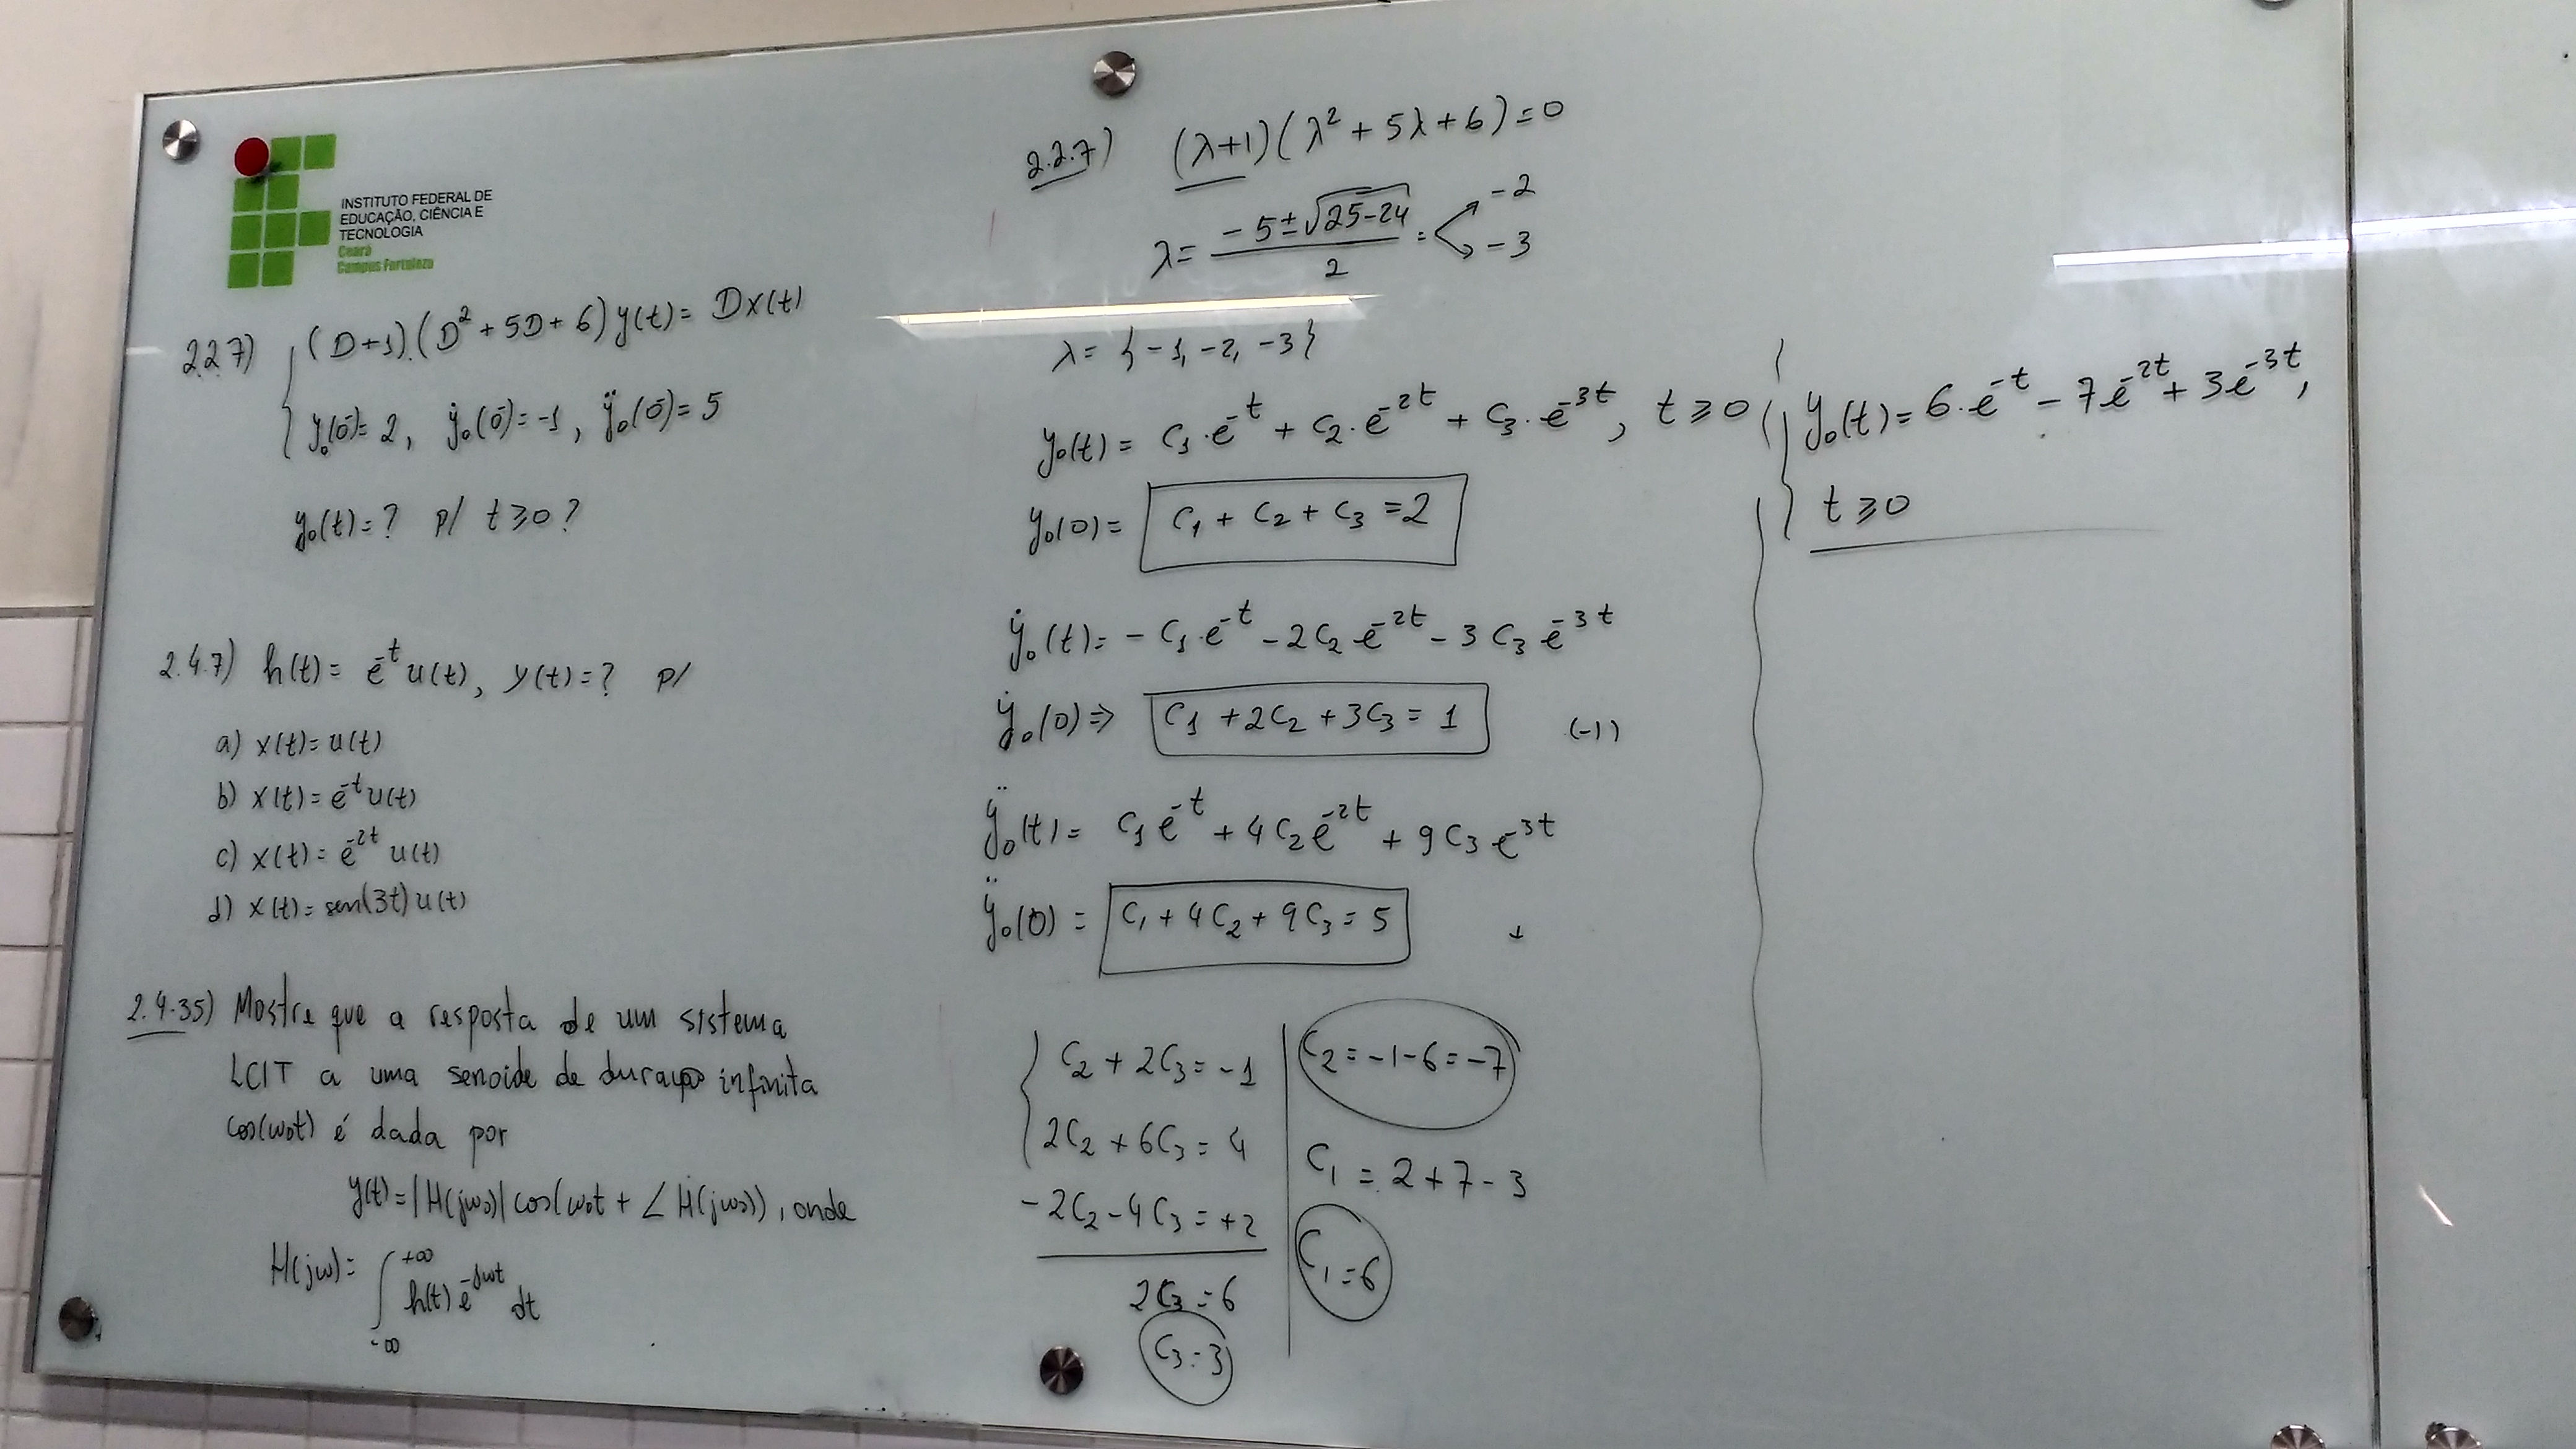 INSTITUTO FEDERAL DE
EDUCAÇÃO, CIÊNCIA E
TECNOLOGIA
Ceará
Campus Fortaleza
2.2.7) (D+1).(D² + 5D + 6) y(t) = Dx(t)
y₀(0⁻) = 2, ẏ₀(0⁻) = -1, ÿ₀(0⁻) = 5
y₀(t) = ? p/ t ≥ 0 ?
2.4.7) h(t) = e⁻ᵗ u(t), y(t) = ? p/
a) x(t) = u(t)
b) x(t) = e⁻ᵗ u(t)
c) x(t) = e⁻²ᵗ u(t)
d) x(t) = sen(3t) u(t)
2.4-35) Mostre que a resposta de um sistema
LCIT a uma senoide de duração infinita
cos(ω₀t) é dada por
y(t) = |H(jω₀)| cos(ω₀t + ∠H(jω₀)), onde
H(jω) = ∫₋∞⁺∞ h(t) e^(-jωt) dt
2.2.7) (λ+1)(λ² + 5λ + 6) = 0
λ = (-5 ± √(25-24))/2 = -2
-3
λ = {-1, -2, -3}
y₀(t) = C₁·e⁻ᵗ + C₂·e⁻²ᵗ + C₃·e⁻³ᵗ, t ≥ 0
y₀(0) = C₁ + C₂ + C₃ = 2
ẏ₀(t) = -C₁·e⁻ᵗ - 2C₂ e⁻²ᵗ - 3C₃ e⁻³ᵗ
ẏ₀(0) ⇒ C₁ + 2C₂ + 3C₃ = 1 (-1)
ÿ₀(t) = C₁ e⁻ᵗ + 4C₂ e⁻²ᵗ + 9C₃ e⁻³ᵗ
ÿ₀(0) = C₁ + 4C₂ + 9C₃ = 5 +
C₂ + 2C₃ = -1
2C₂ + 6C₃ = 4
-2C₂ - 4C₃ = +2
2C₃ = 6
C₃ = 3
C₂ = -1-6 = -7
C₁ = 2+7-3
C₁ = 6
y₀(t) = 6·e⁻ᵗ - 7e⁻²ᵗ + 3e⁻³ᵗ,
t ≥ 0